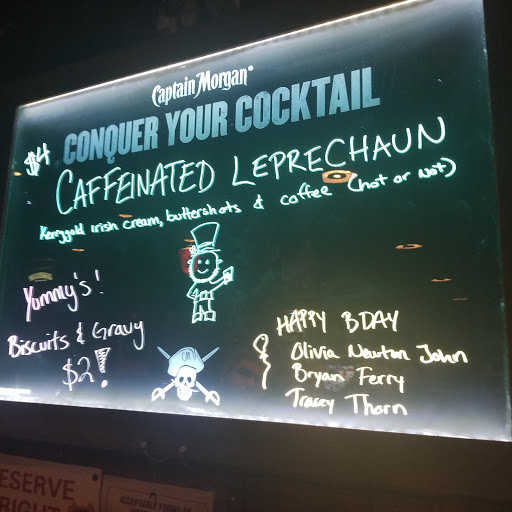 Captain Morgan
CONQUER YOUR COCKTAIL
$4
CAFFEINATED LEPRECHAUN
Kerrygold irish cream, buttershots & coffee (hot or not)
Yummy's!
Biscuits & Gravy
$2!
HAPPY BDAY
Olivia Newton John
Bryan Ferry
Tracey Thorn
CM
ESERVE
RIGHT
ACCEPTABLE FORMS OF